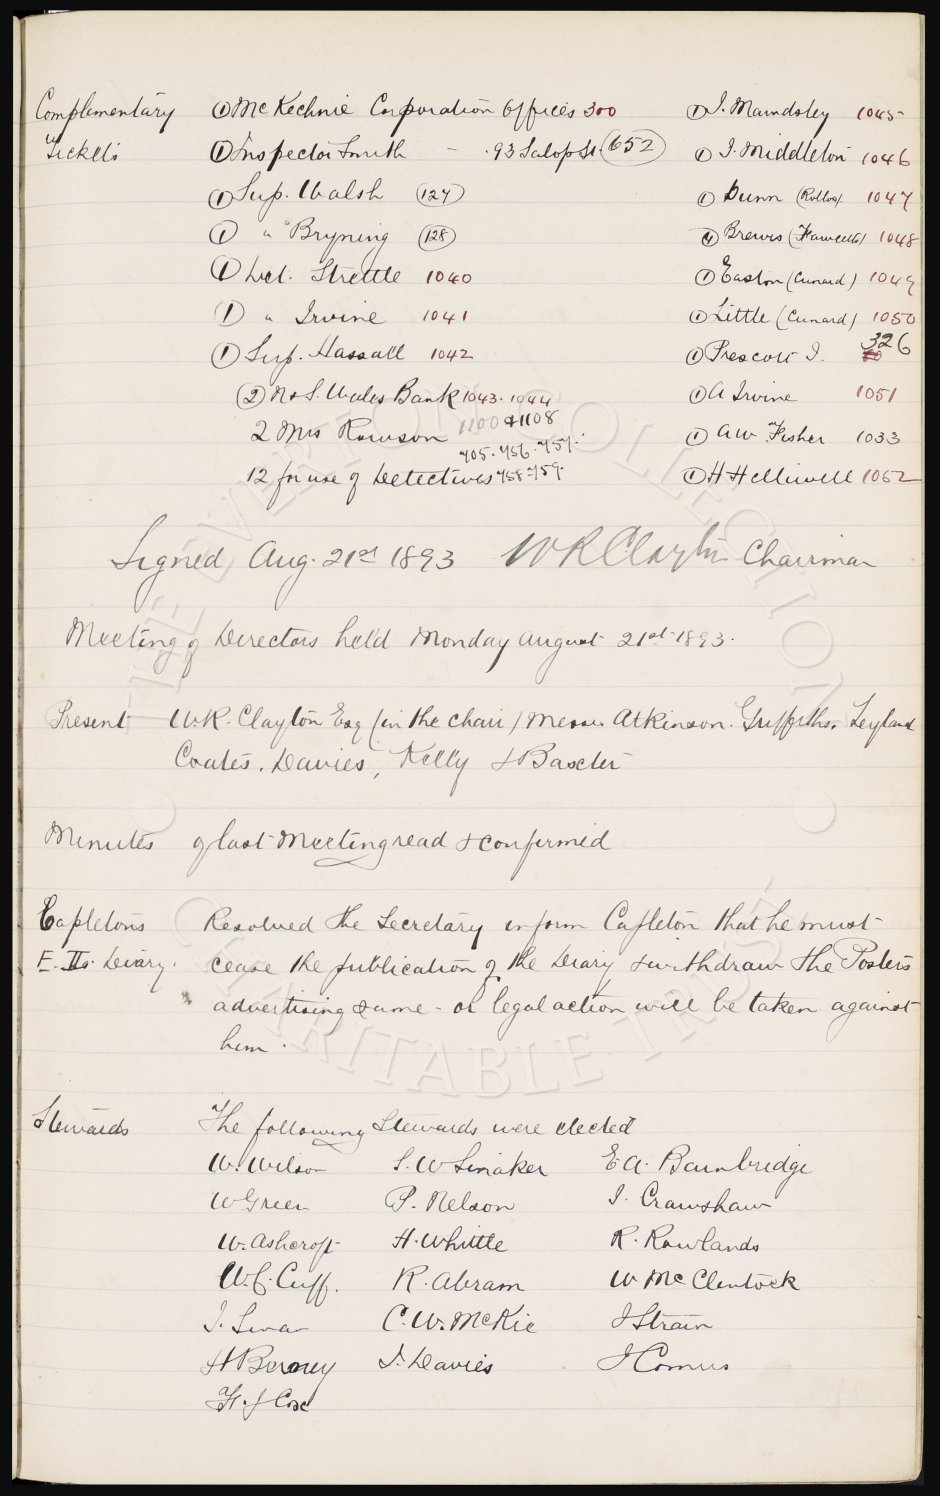 Complimentary ① McKechnie Corporation Offices 300 ① J. Mawdsley 1045
Tickets ① Inspector Smith - 93 Salop St. 652 ① J. Middleton 1046
① Sup. Walsh 127 ① Dunn (Rollos) 1047
① " Bryning 128 Brewis (Fawcetts) 1048
① Det. Strettle 1040 ① Easton (Cunard) 1049
① " Irvine 1041 ① Little (Cunard) 1050
① Sup. Hassall 1042 ① Prescott J. 326
② N & S. Wales Bank 1043. 1044 ① A Irvine 1051
2 Mrs Rawson 1100 & 1108 ① AW Fisher 1033
705. 756. 757.
12 for use of Detectives 758-759. ① H Helliwell 1052
Signed Aug. 21st 1893 WR Clayton Chairman
Meeting of Directors held Monday August 21st 1893.
Present W.R. Clayton Esq (in the chair) Messrs Atkinson. Griffiths. Leyland
Coates. Davies, Kelly & Baxter
Minutes of last Meeting read & confirmed
Capletons Resolved the Secretary inform Capleton that he must
E. Ts. Diary. cease the publication of the Diary & withdraw the Posters
advertising same - or legal action will be taken against
him.
Stewards The following Stewards were elected
W. Wilson S. W Smaker E A. Bainbridge
W Green P. Nelson J. Crawshaw
W. Ashcroft H. Whittle R. Rowlands
W. C. Cuff. R. Abram W McClentock
J. Swan C. W. McKie J Strain
H Berney J. Davies J Comus
H. J Cox